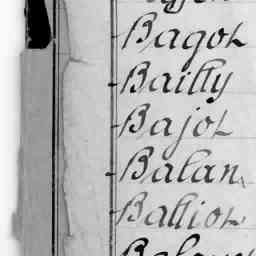 Bagot
Bailly
Bajot
Balan
Balliot